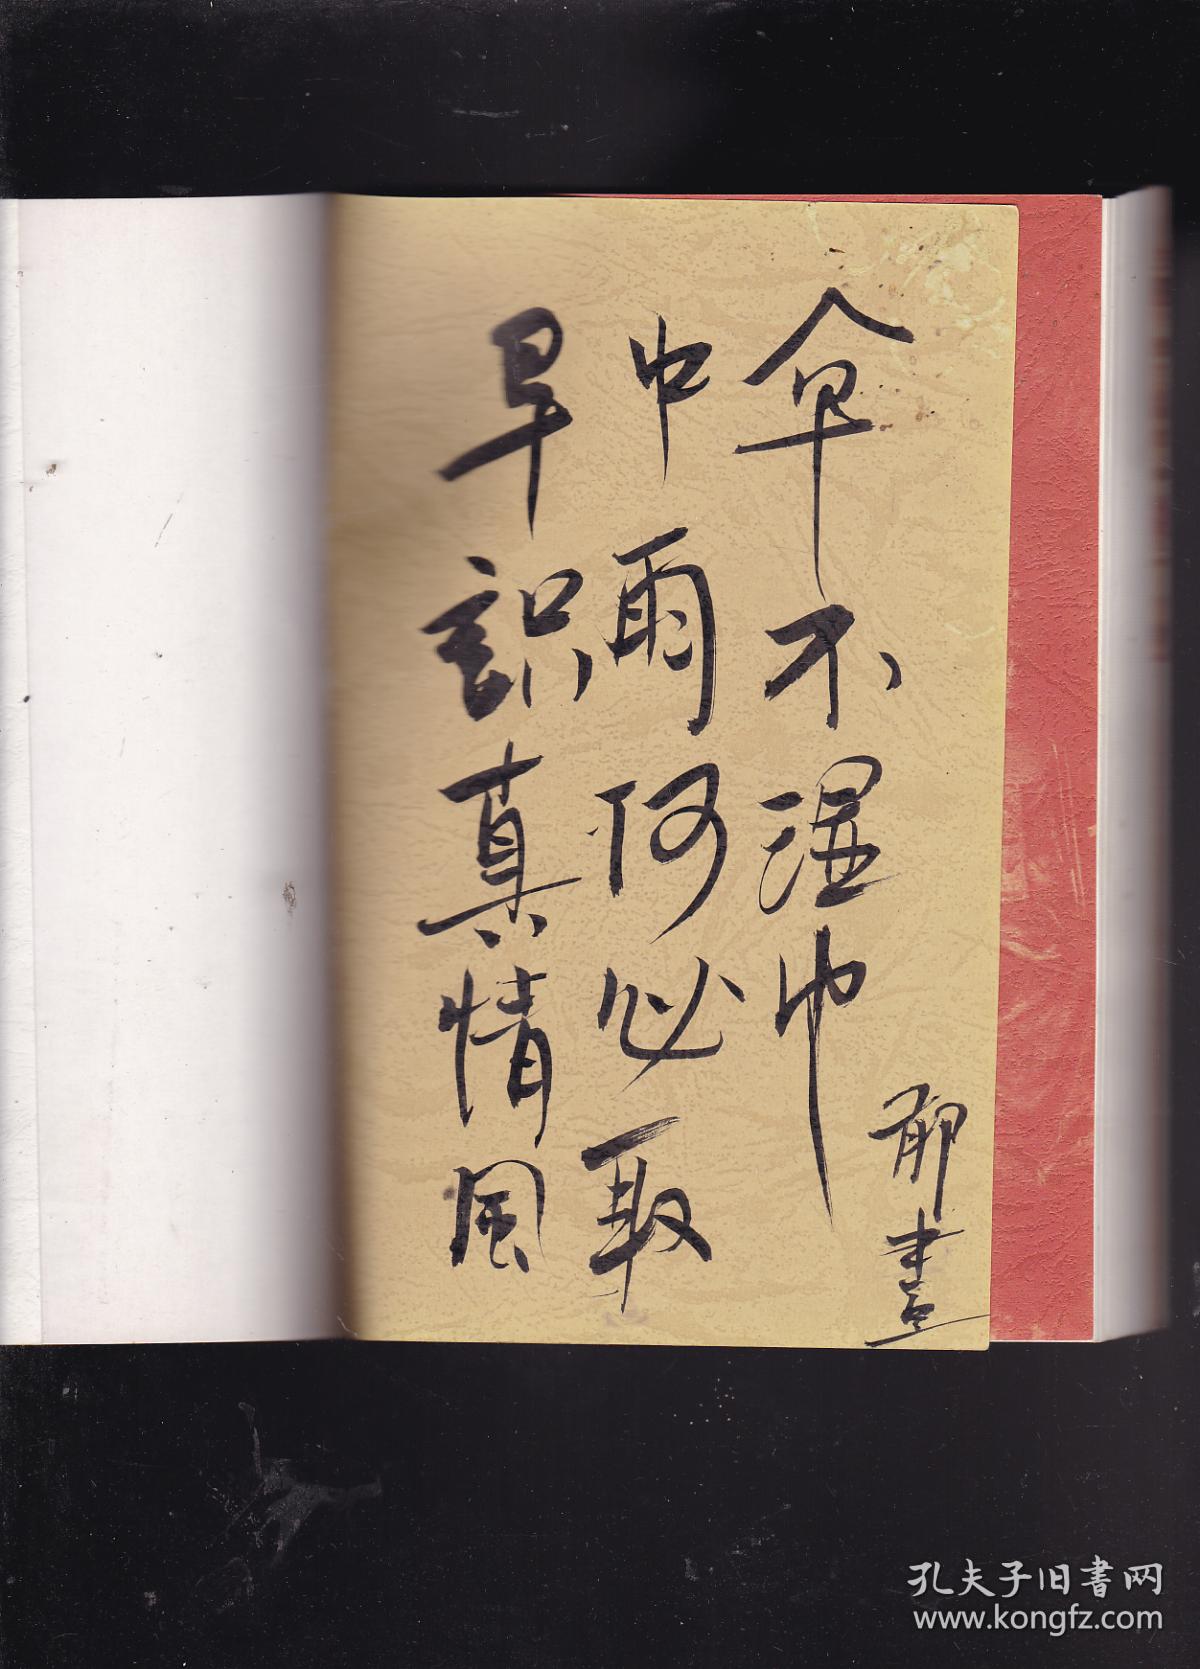 早识真情風
中雨何必取
伞不湿巾
郁書
孔夫子旧書网
www.kongfz.com